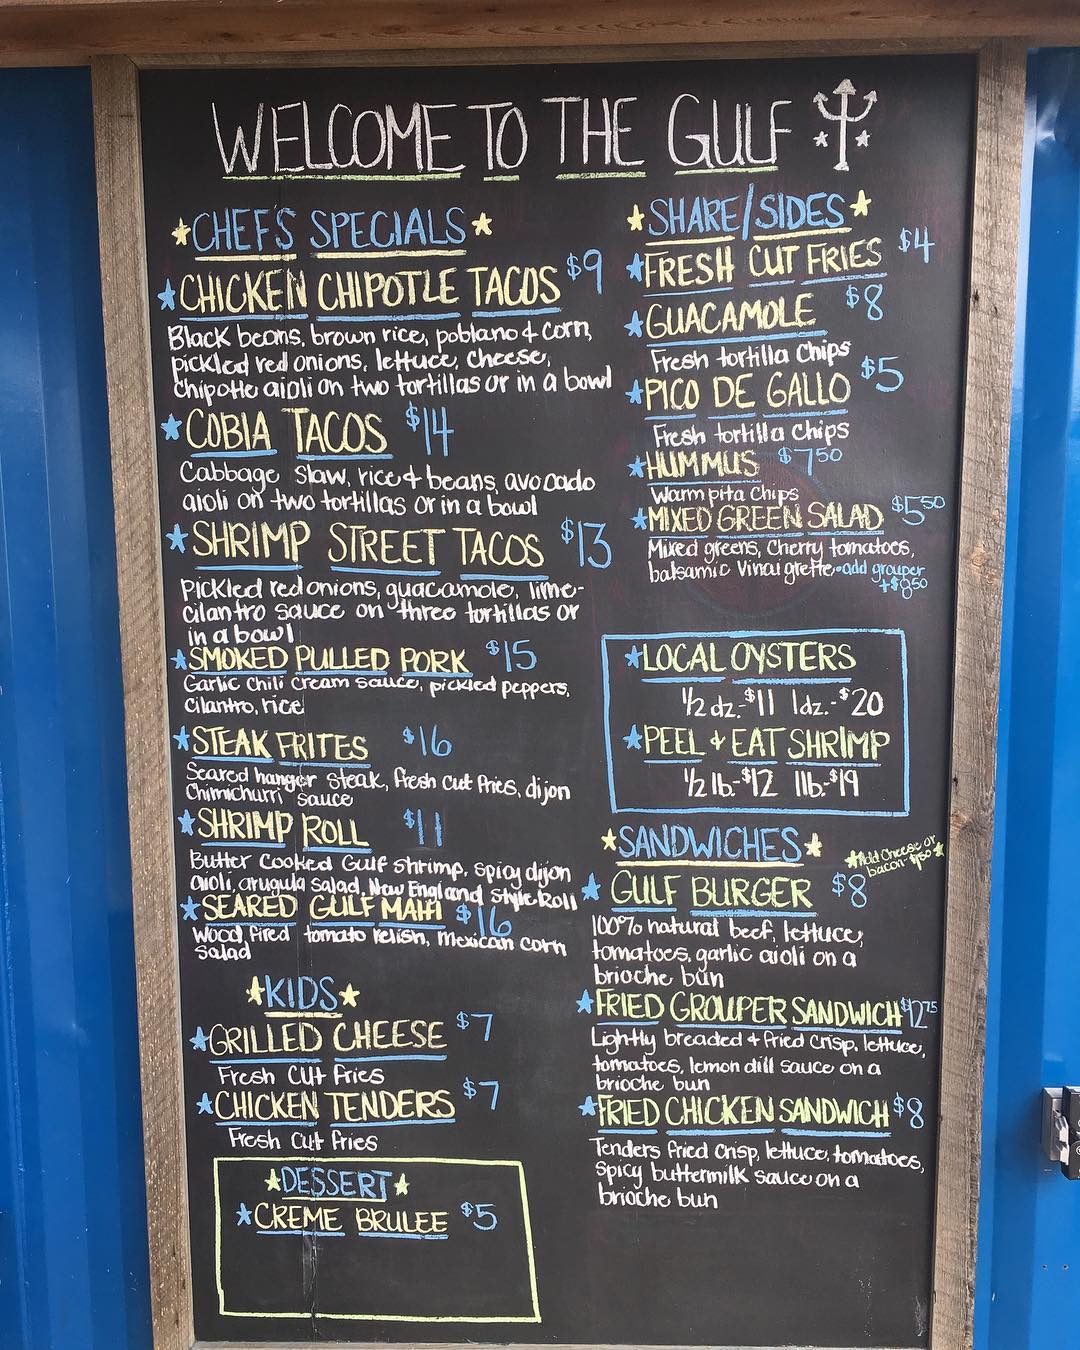 WELCOME TO THE GULF
CHEFS SPECIALS
CHICKEN CHIPOTLE TACOS $9
Black beans, brown rice, poblano & corn,
pickled red onions, lettuce, cheese,
Chipotle aioli on two tortillas or in a bowl
COBIA TACOS $14
Cabbage Slaw, rice & beans, avocado
aioli on two tortillas or in a bowl
SHRIMP STREET TACOS $13
Pickled red onions, guacamole, lime-
cilantro sauce on three tortillas or
in a bowl
SMOKED PULLED PORK $15
Garlic Chili Cream sauce, pickled peppers,
Cilantro, rice
STEAK FRITES $16
Seared hanger steak, fresh cut fries, dijon
Chimichurri sauce
SHRIMP ROLL $11
Butter Cooked Gulf shrimp, spicy dijon
aioli, arugula salad, New England style Roll
SEARED GULF MAHI $16
Wood fired tomato relish, Mexican corn
salad
KIDS
GRILLED CHEESE $7
Fresh Cut Fries
CHICKEN TENDERS $7
Fresh Cut fries
DESSERT
CREME BRULEE $5
SHARE/SIDES
FRESH CUT FRIES $4
GUACAMOLE $8
Fresh tortilla Chips
PICO DE GALLO $5
Fresh tortilla Chips
HUMMUS $7.50
Warm pita Chips
MIXED GREEN SALAD $5.50
Mixed greens, Cherry tomatoes,
balsamic Vinaigrette • add grouper
+$8.50
LOCAL OYSTERS
1/2 dz.-$11 1dz.-$20
PEEL & EAT SHRIMP
1/2 lb.-$12 1lb.-$19
SANDWICHES
Add Cheese or
bacon-$1.50
GULF BURGER $8
100% natural beef, lettuce,
tomatoes, garlic aioli on a
brioche bun
FRIED GROUPER SANDWICH $12.75
Lightly breaded & fried crisp, lettuce,
tomatoes, lemon dill sauce on a
brioche bun
FRIED CHICKEN SANDWICH $8
Tenders fried crisp, lettuce, tomatoes,
Spicy buttermilk sauce on a
brioche bun